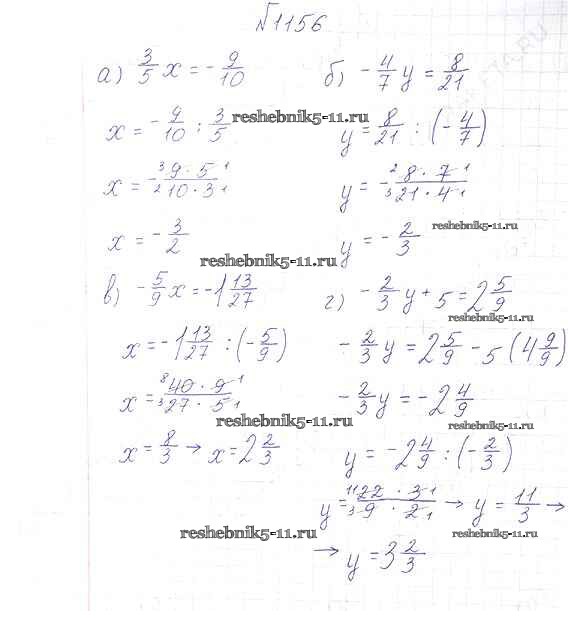 №1156
а) 3/5 x = - 9/10
x = - 9/10 : 3/5
x = - 9 · 5 / 10 · 3
x = - 3/2
б) - 4/7 y = 8/21
y = 8/21 : (- 4/7)
y = - 8 · 7 / 21 · 4
y = - 2/3
в) - 5/9 x = -1 13/27
x = -1 13/27 : (- 5/9)
x = 40 · 9 / 27 · 5
x = 8/3 → x = 2 2/3
г) - 2/3 y + 5 = 2 5/9
- 2/3 y = 2 5/9 - 5 (4 9/9)
- 2/3 y = -2 4/9
y = -2 4/9 : (- 2/3)
y = 22 · 3 / 9 · 2 → y = 11/3 →
→ y = 3 2/3
reshebnik5-11.ru
reshebnik5-11.ru
reshebnik5-11.ru
reshebnik5-11.ru
reshebnik5-11.ru
reshebnik5-11.ru
reshebnik5-11.ru
reshebnik5-11.ru